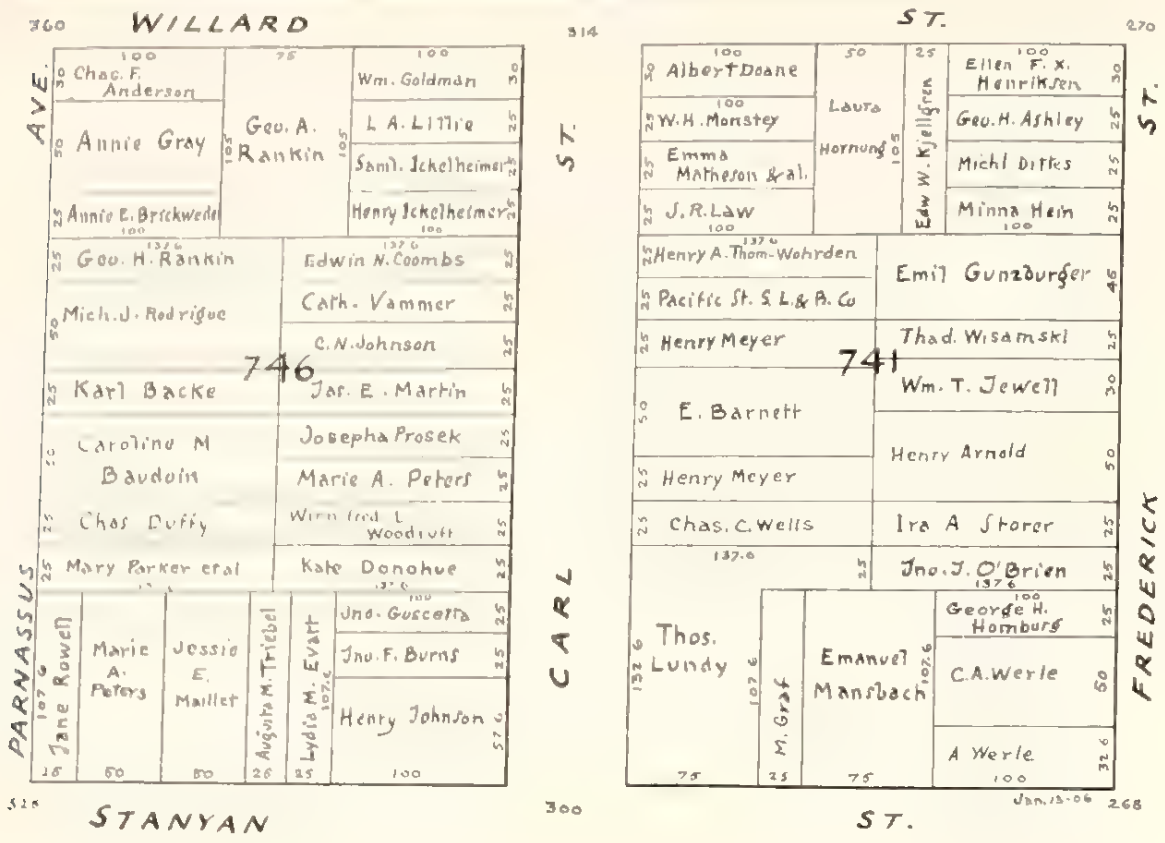 360 WILLARD 314 ST. 270
PARNASSUS AVE.
100
30 Chas. F.
Anderson
50 Annie Gray
25 Annie E. Brickwedel
100
75
105 Geo. A. 105
Rankin
100
Wm. Goldman 30
L A. Lillie 25
Saml. Ickelheimer 25
Henry Ickelheimer 25
100
137 6
25 Geo. H. Rankin
50 Mich. J. Rodrigue
25 Karl Backe
50 Caroline M
Bauduin
25 Chas Duffy
25 Mary Parker et al
137 6
137 6
Edwin N. Coombs 25
Cath. Vammer 25
C. N. Johnson 25
746
Jas. E. Martin 25
Josepha Prosek 25
Marie A. Peters 25
Winnifred L
Woodruff 25
Kate Donohue 25
137 6
107 6 Jane Rowell
25
Marie
A.
Peters
50
Jessie
E.
Maillet
50
Augusta M. Triebel
25
Lydia M. Evatt
107.6
25
100
Jno. Guscetta 25
Jno. F. Burns 25
Henry Johnson 57 6
100
CARL ST.
100
30 Albert Doane
100
25 W. H. Monstey
25 Emma
Matheson & al.
25 J. R. Law
100
50
Laura
Hornung 105
25
Edw W. Kjellgren
100
Ellen F. X.
Henriksen 30
Geo. H. Ashley 25
Michl Dittes 25
Minna Hein 25
100
137 6
25 Henry A. Thom-Wohrden
25 Pacific St. S. L. & B. Co
25 Henry Meyer
50 E. Barnett
25 Henry Meyer
25 Chas. C. Wells
137.6
Emil Gunzburger 45
Thad. Wisamski 25
741
Wm. T. Jewell 30
Henry Arnold 50
Ira A Storer 25
25 Jno. J. O'Brien 25
137 6
132 6 Thos.
Lundy 107 6
75
M. Graf
25
Emanuel
Mansbach 107.6
75
100
George H.
Homburg 25
C. A. Werle 50
A Werle 32 6
100
FREDERICK ST.
Jan. 13-06
STANYAN 300 ST. 268